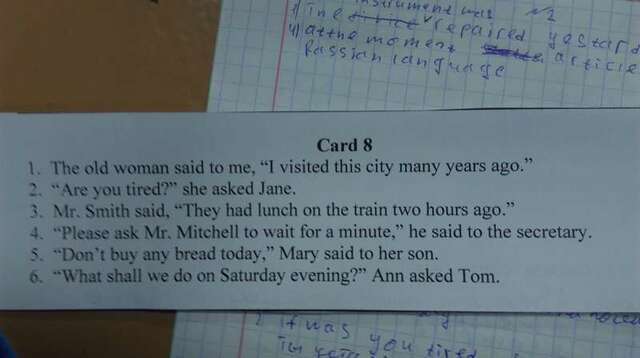 instrument was
The repaired
at the moment article
Russian language
Card 8
1. The old woman said to me, “I visited this city many years ago.”
2. “Are you tired?” she asked Jane.
3. Mr. Smith said, “They had lunch on the train two hours ago.”
4. “Please ask Mr. Mitchell to wait for a minute,” he said to the secretary.
5. “Don’t buy any bread today,” Mary said to her son.
6. “What shall we do on Saturday evening?” Ann asked Tom.
it was
you tired